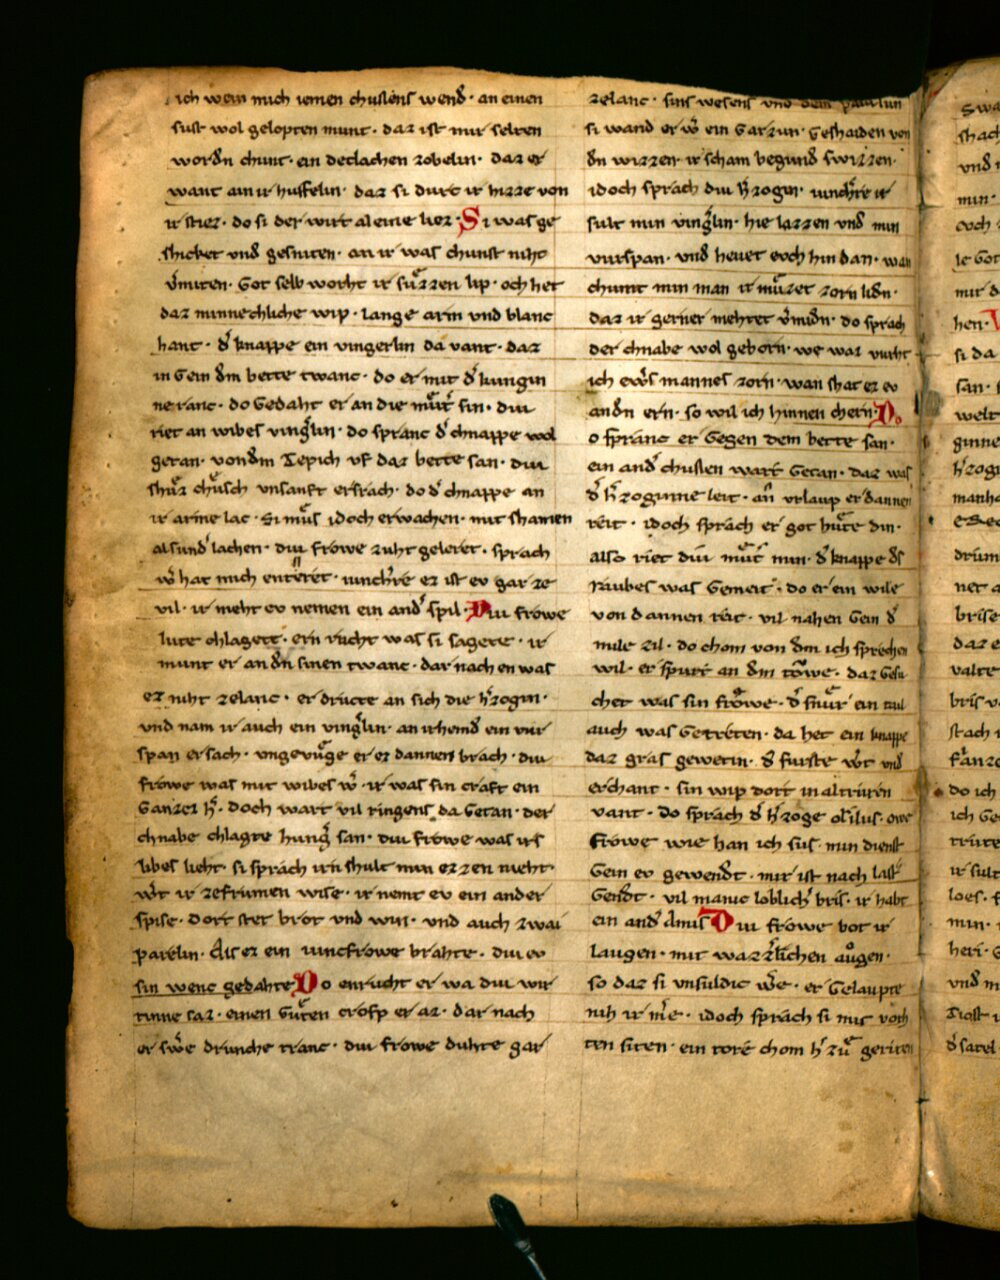 ich wem mich iemen chuslens wend̾ · an einen
sust wol gelopten munt · daz ist mir selten
word̾n chunt · ein declachen zobelin · daz er
want an ir huffelin · daz si durt ir hizze von
ir stiez · do si der wirt al eine liez · Si was ge
shicket vnd̾ gesniten · an ir was chunst niht
v̾miten · Got selb worht ir suͤzzen lip · och het
daz minnechliche wip · lange arm vnd blanc
hant · d̾ knappe ein vingerlin da vant · daz
in Gein d̾m bette twanc · do er mit d̾ kungin
ne ranc · do Gedaht er an die muͦt̾ sin · diu
riet an wibes ving̾lin · do spranc d̾ chnappe wol
getan · von d̾m Tepich vf daz bette san · diu
shuͤz chuͤsch vnsanft ersrach · do d̾ chnappe an
ir arme lac · Si muͦs idoch erwachen · mit shamen
al sund̾ lachen · diu frowe zuht geleret · sprach
w̾ hat mich enteret · iunch̾re ez ist ev gar ze
vil · ir meht ev nemen ein and̾ spil · Diu frowe
lute chlagett · ern rucht was si sagete · ir
munt er an d̾n sinen twanc · dar nach en was
ez niht zelanc · er dructe an sich die h̾zogin ·
vnd nam ir auch ein ving̾lin · an ir hemd̾ ein vur
span er sach · vngevuͤge er ez dannen brach · diu
frowe was mit wibes w̾ · ir was sin craft ein
Ganzez h̾ · doch wart vil ringens da Getan · der
chnabe chlagte hung̾ san · diu frowe was irs
libes lieht · si sprach irn shult min ezzen nieht ·
w̾t ir zefrumen wise · ir nemt ev ein ander
spise · dort stet brot vnd win · vnd auch zwai
parelin · Als ez ein iuncfrowe brahte · diu ev
sin wenc gedahte Do enrucht er wa diu wir
tinne saz · einen Guͦten cropf er az · dar nach
er sw̾e drunche tranc · diu frowe duhte gar
zelanc · sins wesens vnd dem
si wand er w̾ ein Garzun · Gesheiden von
d̾n wizzen · ir scham begund̾ swizzen ·
idoch sprach diu h̾zogin · iunch̾re ir
sult min ving̾lin · hie lazzen vnd̾ min
vurspan · vnd̾ hevet evch hin dan · wan
chumt min man ir muͤzet zorn lid̾n ·
daz ir gerner mehtet v̾mid̾n · do sprach
der chnabe wol geborn · we waz vurht
ich ew̾s mannes zorn · wan shat ez ev
an d̾n ern · so wil ich hinnen chern Do
o spranc er Gegen dem bette san ·
ein and̾ chuslen wart Getan · daz was
d̾ h̾zoginne leit · an̄ vrlaup er dannen
reit · idoch sprach er got huͤte din ·
also riet diu muͦt̾ min · d̾ knappe d̾s
raubes was Gemeit · do er ein wile
von dannen reit · vil nahen Gein d̾
mile zil · do chom von d̾m ich sprechen
wil · er spurt an d̾m towe · daz Gesu
chet was sin frowe · d̾ snuͤr ein tail
auch was Getreten · da het ein knappe
daz gras gewetin · d̾ furste w̾t vnd̾
erchant · sin wip dort in al truren
vant · do sprach d̾ h̾zoge olsilus · owe
frowe wie han ich sus · min dienst
Gein ev gewend̾t · mir ist nach last̾
Gend̾t · vil manic loblich̾ bris · ir habt
ein and̾ amis Diu frowe bot ir
laugen · mit wazz̾lichen auͦgen ·
so daz si vnsuldic w̾e · er Gelaupte
niht ir m̾e · idoch sprach si mit vorh
ten siten · ein tore chom h̾ zuͦ geriten